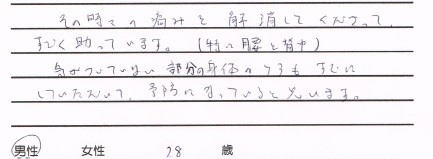 その時々の痛みを解消してくださって、
すごく助っています。(特に腰と背中)
気がついていない部分の身体の
していただいて、予防になっていると思います。
男性 女性 28 歳